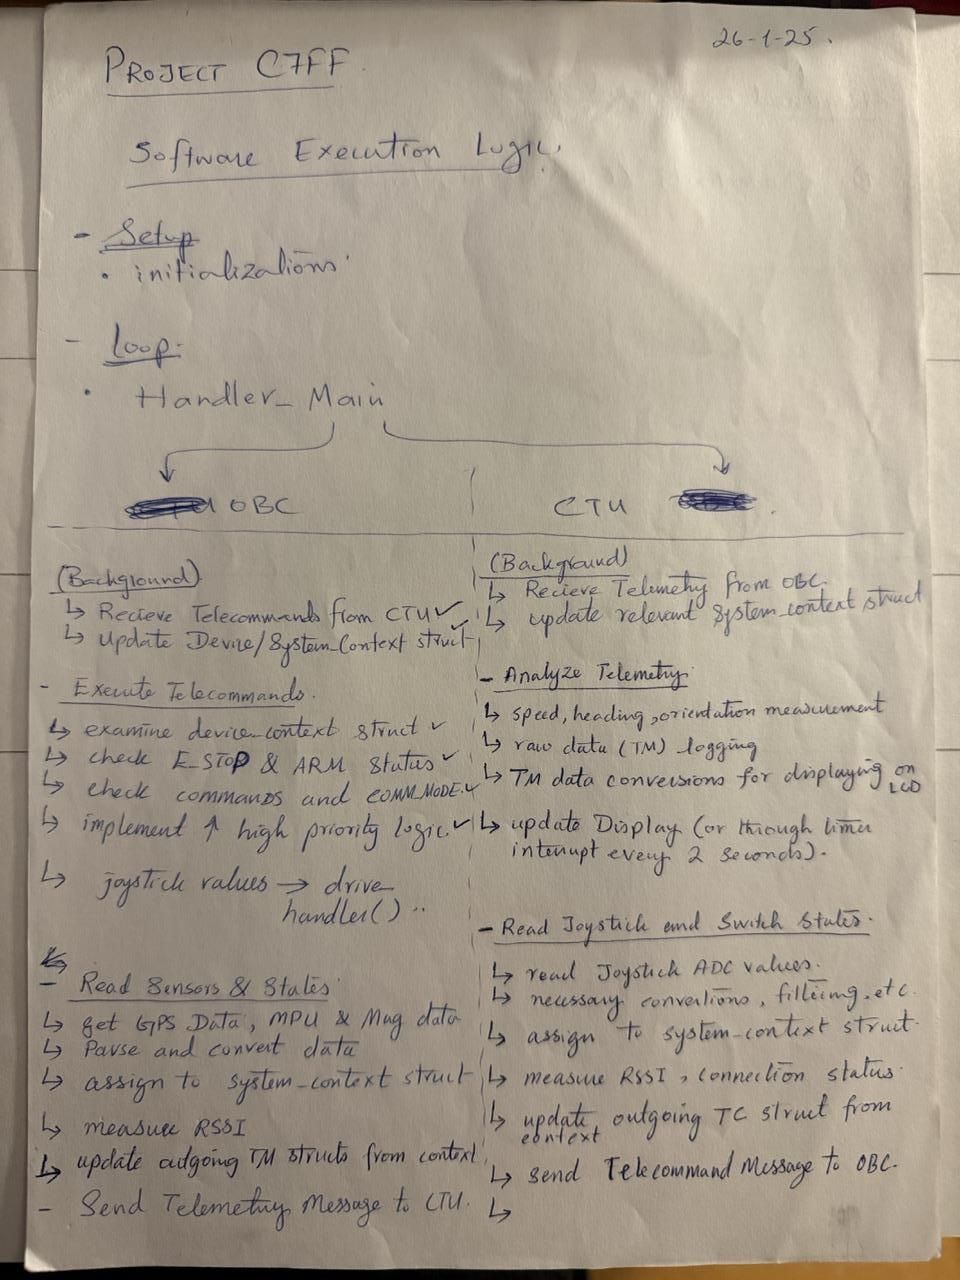 26-1-25.
PROJECT C7FF
Software Execution Logic.
- Setup
• initializations
- Loop:
• Handler_Main
OBC
CTU
(Background)
↳ Recieve Telecommands from CTU ✓
↳ Update Device/System_Context struct ✓
- Execute Telecommands.
↳ examine device_context struct ✓
↳ check E_STOP & ARM Status ✓
↳ check commands and COMM_MODE. ✓
↳ implement ↑ high priority logic. ✓
↳ joystick values → drive_
handler() ..
- Read Sensors & States
↳ get GPS Data, MPU & Mag data
↳ Parse and convert data
↳ assign to system_context struct
↳ measure RSSI
↳ update outgoing TM structs from context
- Send Telemetry Message to CTU.
(Background)
↳ Recieve Telemetry from OBC.
↳ update relevant System_context struct
- Analyze Telemetry
↳ speed, heading, orientation measurement
↳ raw data (TM) logging
↳ TM data conversions for displaying on
LCD
↳ update Display (or through timer
interrupt every 2 seconds).
- Read Joystick and Switch States.
↳ read Joystick ADC values.
↳ necessary convertions, filtering, etc.
↳ assign to system_context struct.
↳ measure RSSI, connection status.
↳ update outgoing TC struct from
context
↳ send Telecommand Message to OBC.
↳